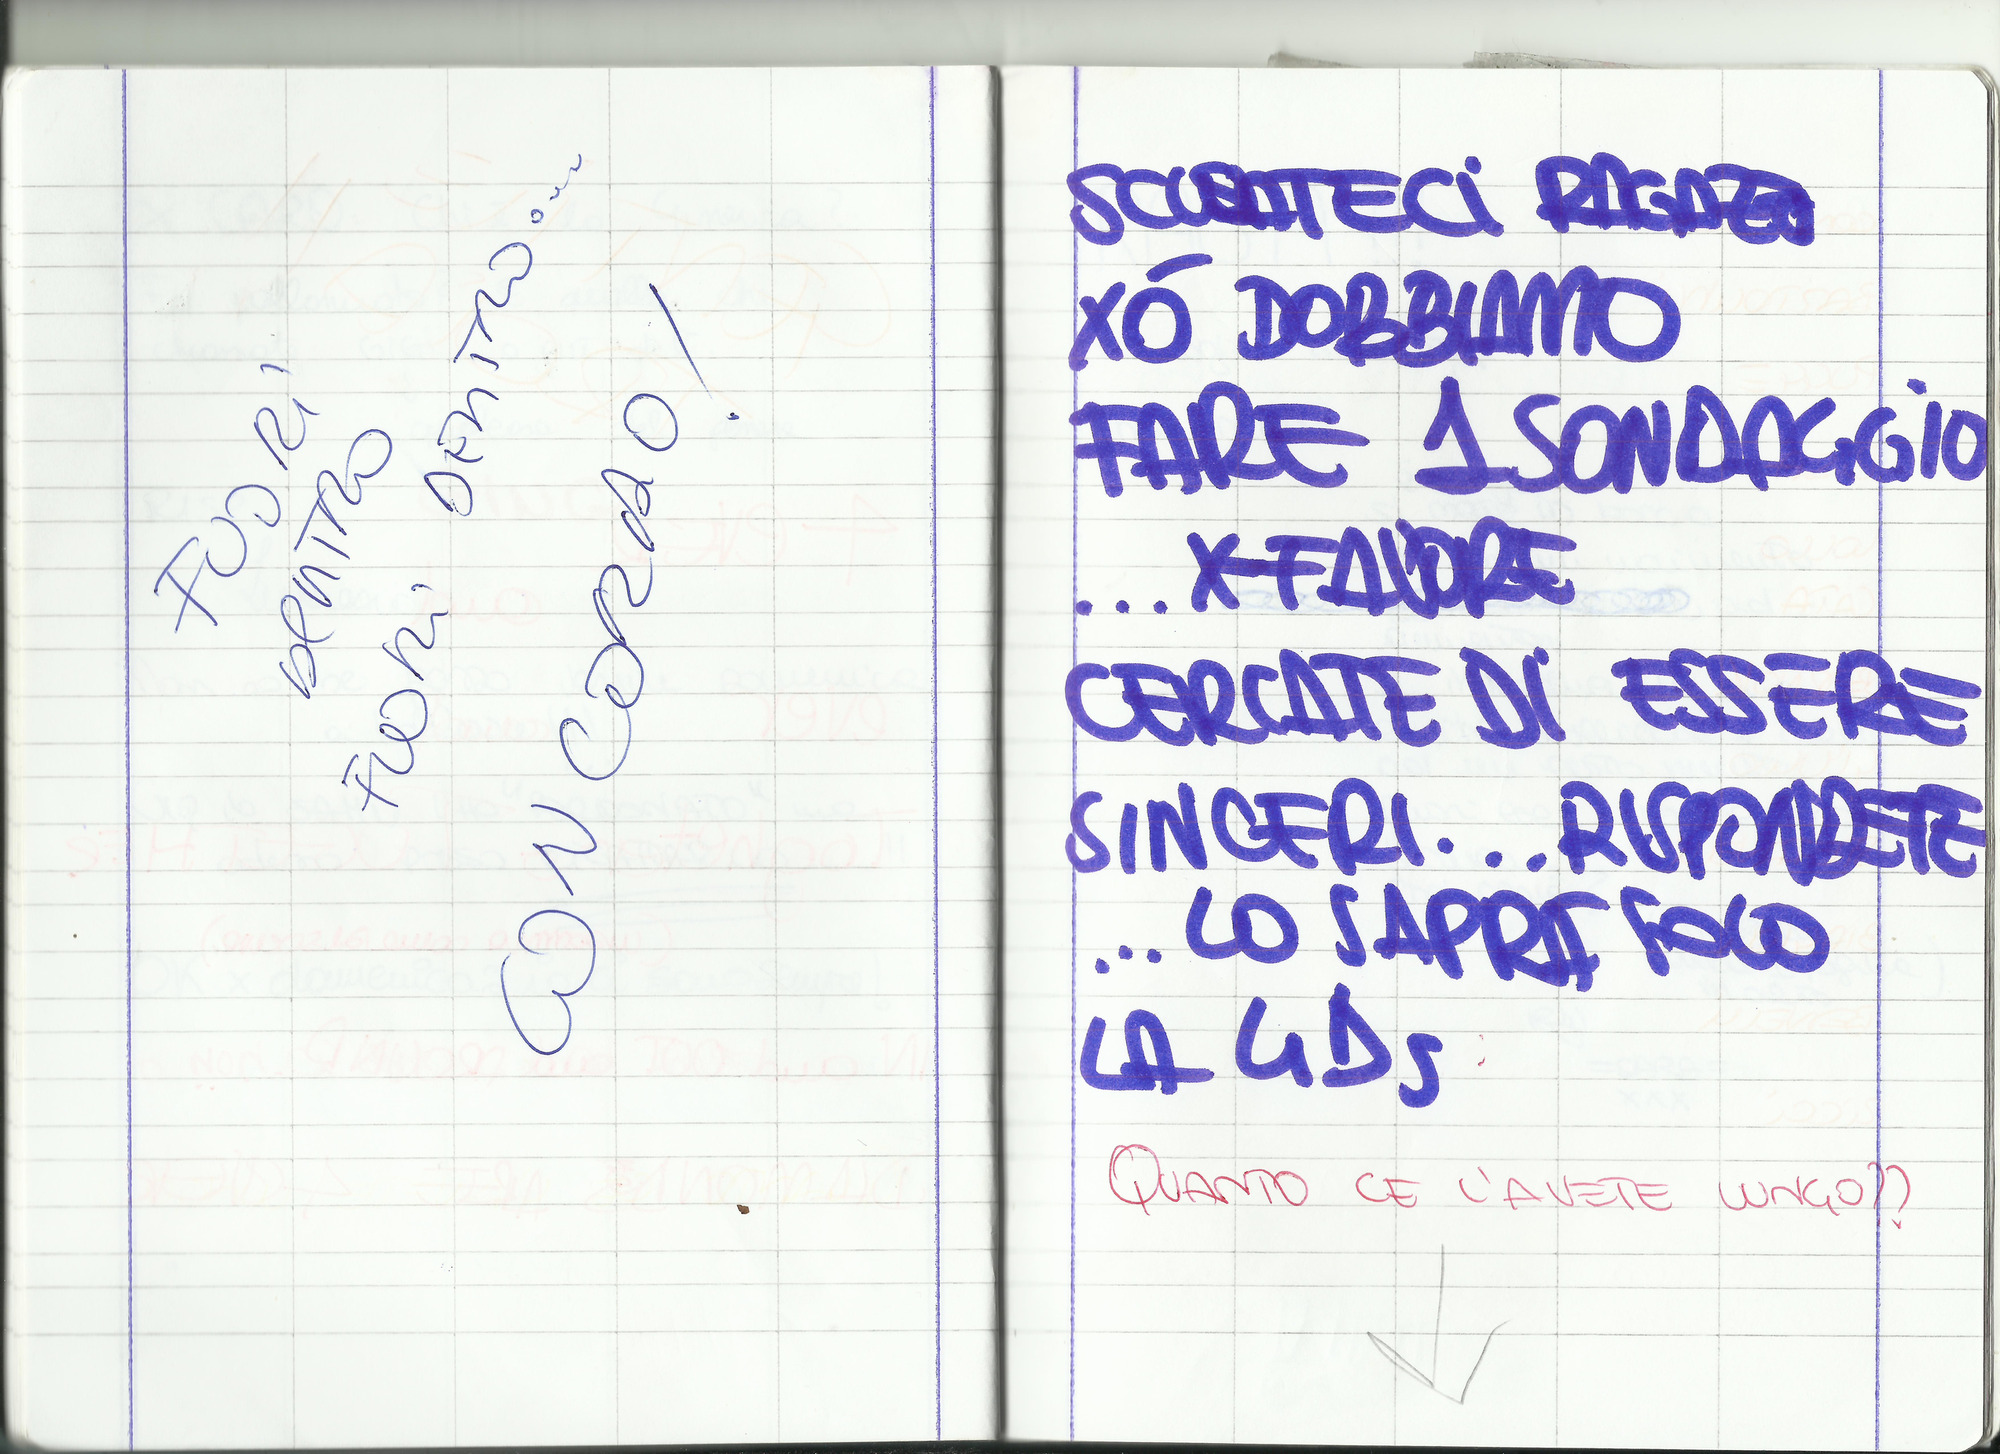 FUORI
DENTRO
FUORI DENTRO...
CON CORDAO!
SCUSATECI RAGAZZI
XÓ DOBBIAMO
FARE 1 SONDAGGIO
... X FAVORE
CERCATE DI ESSERE
SINCERI... RISPONDETE
... LO SAPRÀ SOLO
LA GDS
QUANTO CE L'AVETE LUNGO??